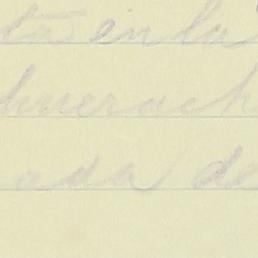 ta en la
huerach
ada de